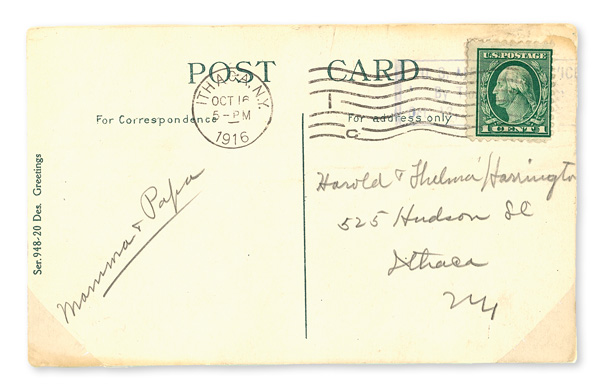 POST CARD
ITHACA, N.Y.
OCT 16
5-PM
1916
U.S. POSTAGE
1 CENT 1
For Correspondence
For address only
Ser. 948-20 Des. Greetings
Mamma & Papa
Harold & Thelma Harrington
525 Hudson St
Ithaca
NY